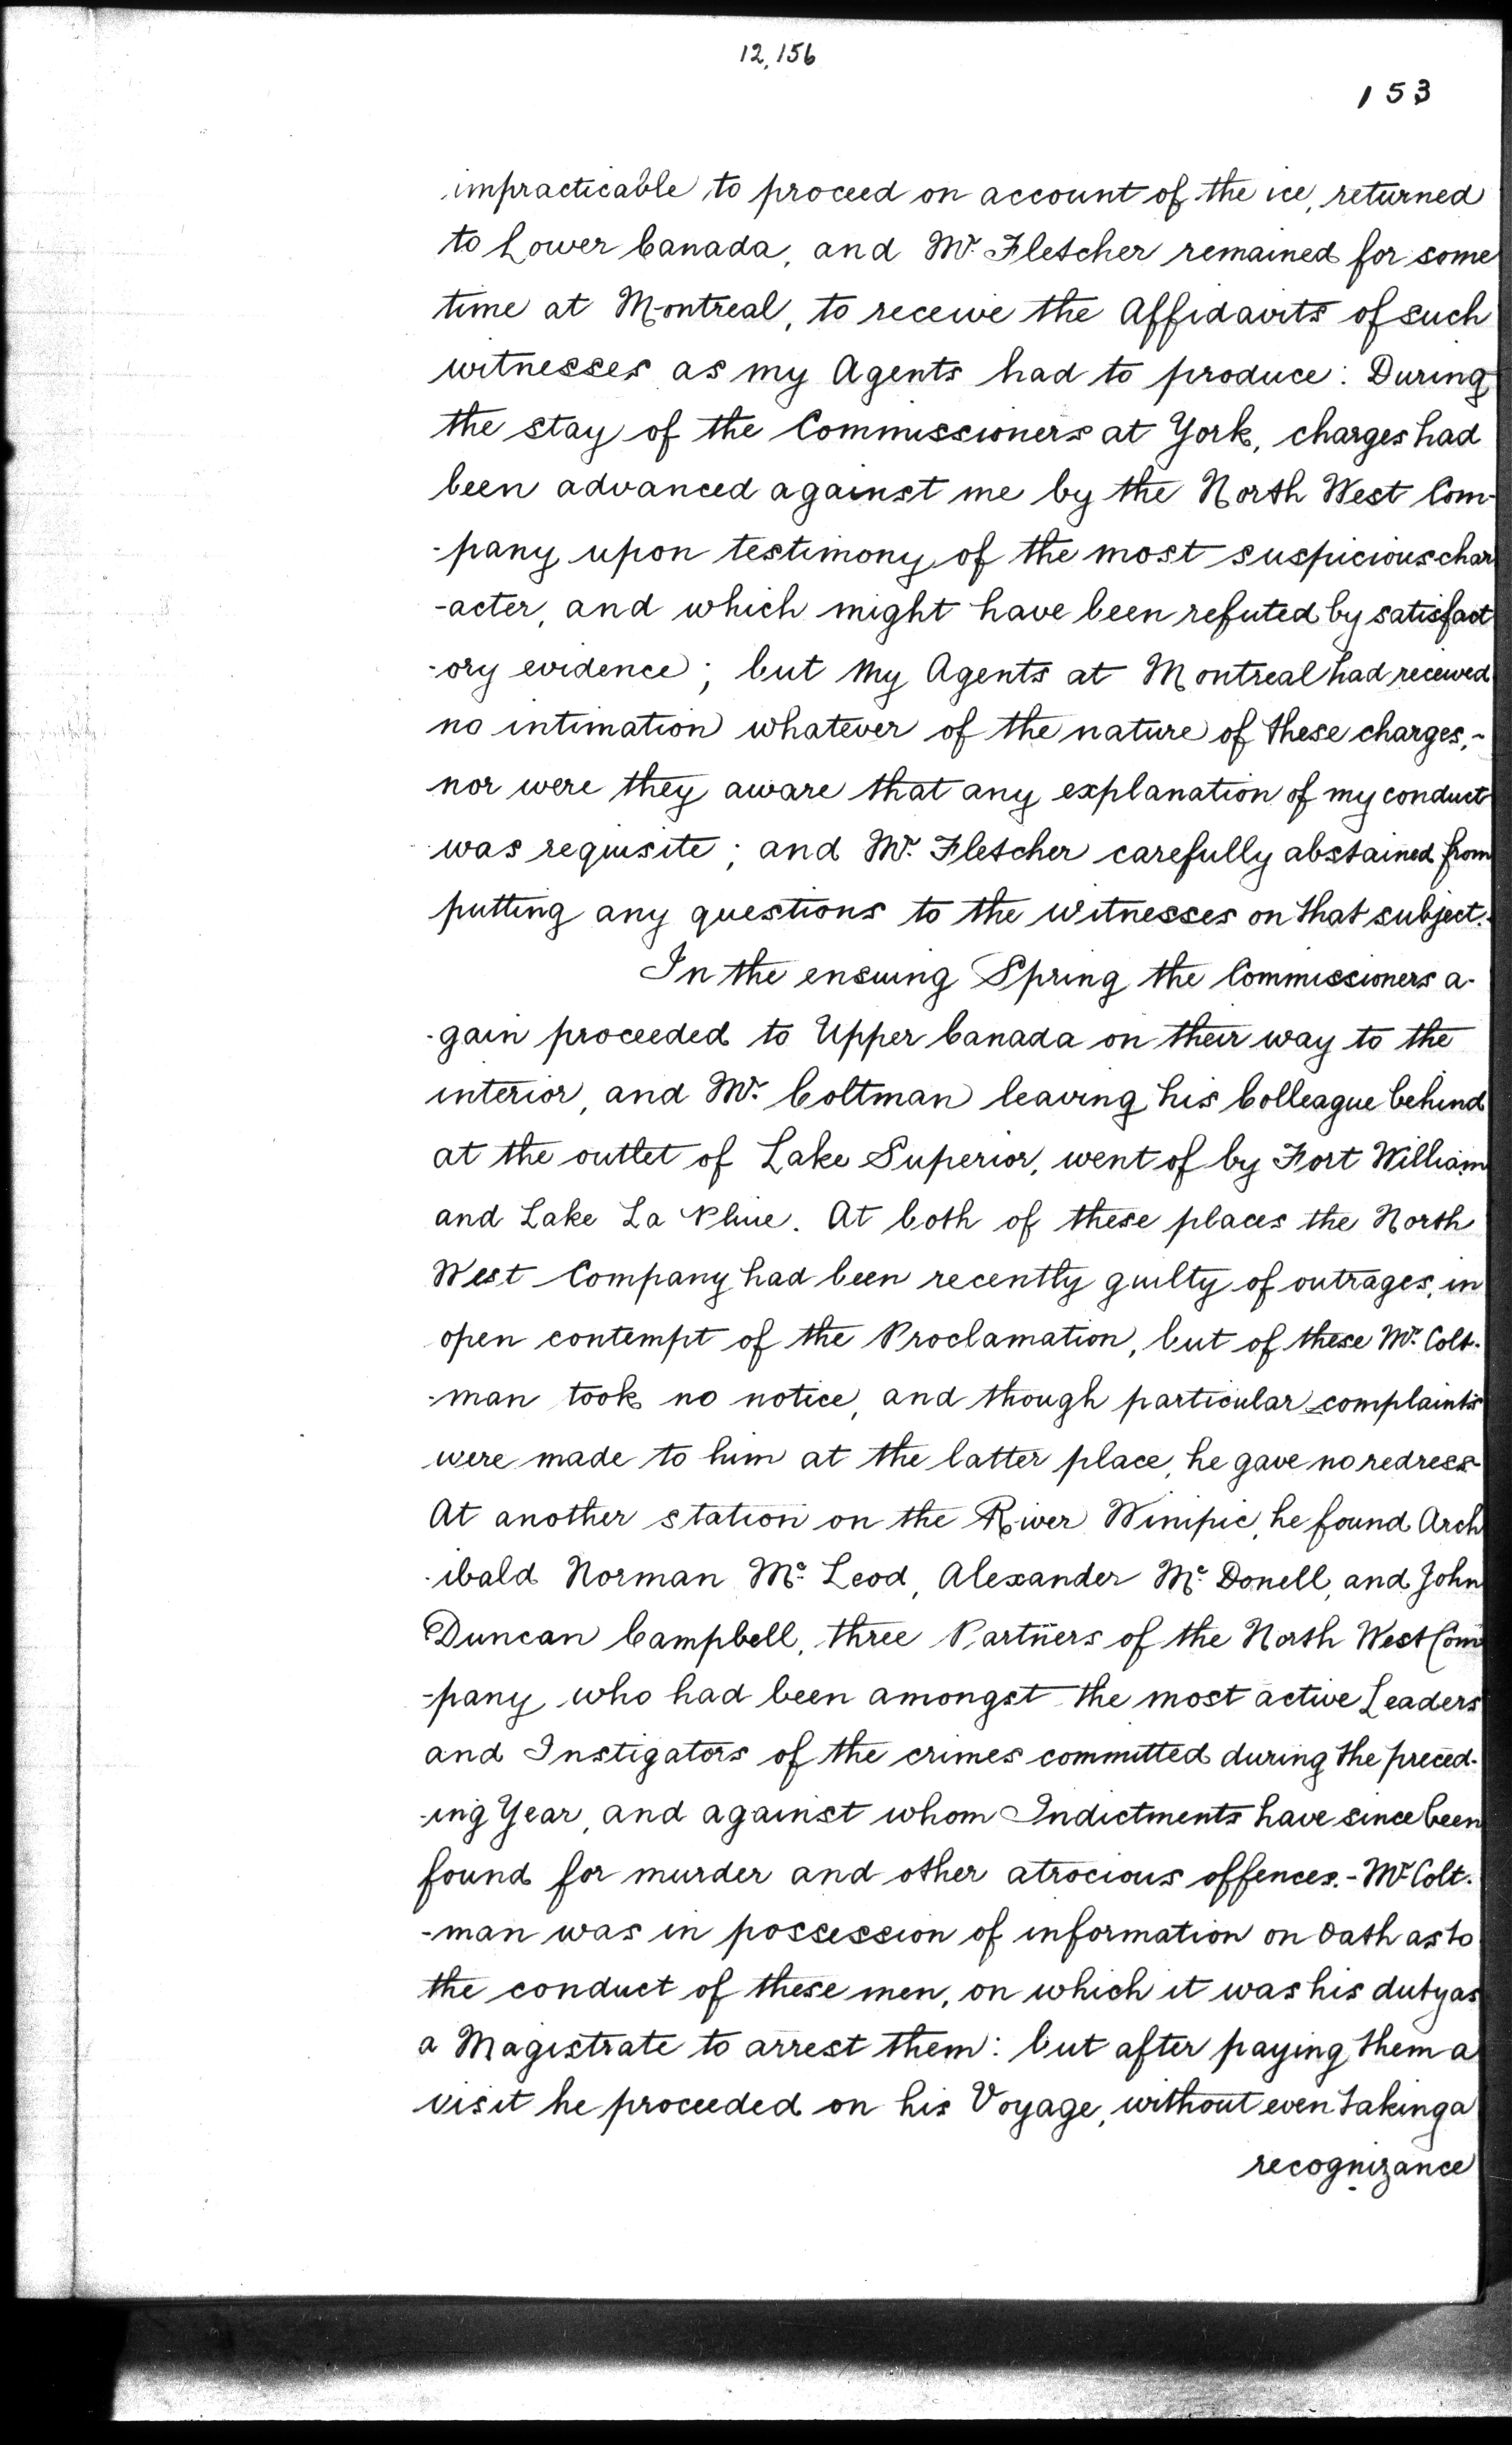 12,156
153
impracticable to proceed on account of the ice, returned
to Lower Canada, and Mr. Fletcher remained for some
time at Montreal, to receive the Affidavits of such
witnesses as my Agents had to produce: During
the stay of the Commissioners at York, charges had
been advanced against me by the North West Com-
-pany upon testimony of the most suspicious char
-acter, and which might have been refuted by satisfact
-ory evidence; but my Agents at Montreal had received
no intimation whatever of the nature of these charges,-
nor were they aware that any explanation of my conduct
was requisite; and Mr. Fletcher carefully abstained from
putting any questions to the witnesses on that subject.
In the ensuing Spring the Commissioners a-
-gain proceeded to Upper Canada on their way to the
interior, and Mr. Coltman leaving his Colleague behind
at the outlet of Lake Superior, went of by Fort William
and Lake La Pluie. At both of these places the North
West Company had been recently guilty of outrages, in
open contempt of the Proclamation, but of these Mr. Colt-
-man took no notice, and though particular complaints
were made to him at the latter place, he gave no redress-
At another station on the River Winipic, he found Arch
-ibald Norman Mc. Leod, Alexander Mc. Donell, and John
Duncan Campbell, three Partners of the North West Com
-pany who had been amongst the most active Leaders
and Instigators of the crimes committed during the preced-
-ing Year, and against whom Indictments have since been
found for murder and other atrocious offences.- Mr. Colt-
-man was in possession of information on oath as to
the conduct of these men, on which it was his duty as
a Magistrate to arrest them: but after paying them a
visit he proceeded on his Voyage, without even taking a
recognizance